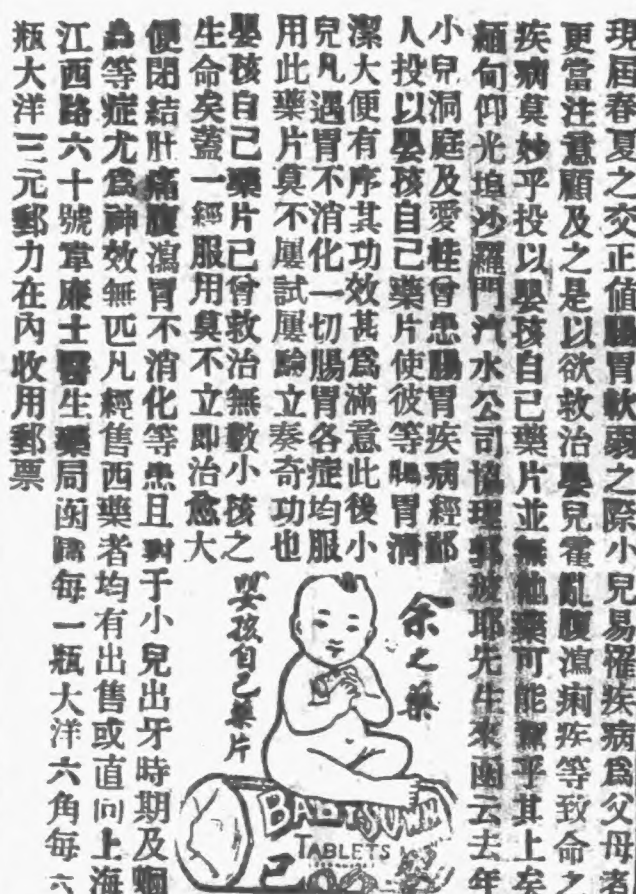 現屆春夏之交正值腸胃軟弱之際小兒易罹疾病爲父母者
更當注意顧及之是以欲救治嬰兒霍亂腹瀉痢疾等致命之
疾病莫妙乎投以嬰孩自己藥片並無他藥可能駕乎其上矣
緬甸仰光埠沙羅門汽水公司協理郭玻耶先生來函云去年
小兒洞庭及愛桂曾患腸胃疾病經鄙
人投以嬰孩自己藥片使彼等腸胃清
潔大便有序其功效甚爲滿意此後小
兒凡遇胃不消化一切腸胃各症均服
用此藥片莫不屢試屢驗立奏奇功也
嬰孩自己藥片已曾救治無數小孩之
生命矣蓋一經服用莫不立即治愈大
便閉結肝痛腹瀉胃不消化等患且對于小兒出牙時期及蛔
蟲等症尤爲神效無匹凡經售西藥者均有出售或直向上海
江西路六十號韋廉士醫生藥局函購每一瓶大洋六角每六
瓶大洋三元郵力在內收用郵票
余之藥
嬰孩自己藥片
TABLETS
己